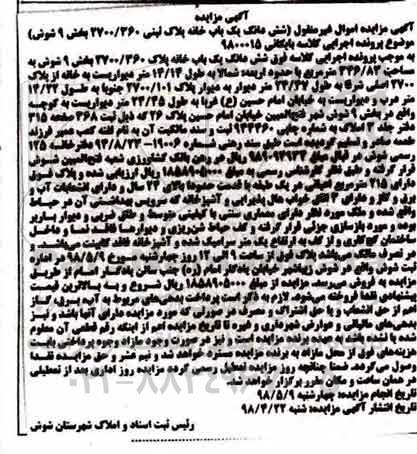 آگهی مزایده
آگهی مزایده اموال غیرمنقول (شش دانگ یک باب خانه پلاک ثبتی ۲۷۰۰/۳۶۰ بخش ۹ شوش)
موضوع پرونده اجرایی کلاسه بایگانی ۹۸۰۰۰۱۵
به موجب پرونده اجرایی کلاسه فوق شش دانگ یک باب خانه پلاک ۲۷۰۰/۳۶۰ بخش ۹ شوش به
مساحت ۳۳۶/۸۳ مترمربع با حدود اربعه: شمالا به طول ۱۴/۱۴ متر دیواریست به خانه از پلاک
۲۷۰۰ اصلی شرقا به طول ۲۳/۲۷ متر دیوار به دیوار پلاک ۲۷۰۰/۱ جنوبا به طول ۱۴/۲۲
متر درب و دیواریست به خیابان امام حسین (ع) غربا به طول ۲۳/۴۵ متر دیواریست به کوچه
واقع در بخش ۹ شوش شهر فتح‌المبین خیابان امام حسین پلاک ۲۶ که ذیل ثبت ۳۶۸ صفحه ۳۱۵
دفتر جلد ۳ املاک به شماره چاپی ۹۴۳۳۶۰ ثبت و سند مالکیت آن به نام
صادر و تسلیم گردیده است طبق سند رهنی شماره ۱۹۰۰۶- ۹۴/۸/۲۳ دفترخانه ۱۲۵
رسمی شوش در قبال مبلغ ریال در رهن بانک کشاورزی شعبه فتح‌المبین شوش
قرار گرفت و طبق نظر کارشناس رسمی به مبلغ ۱۸۵۸۹۰۵۰۰۰ ریال ارزیابی شده و پلاک فوق
دارای ۲۱۵ مترمربع اعیانی در یک طبقه با قدمت حدودا بالای ۲۳ سال و دارای انشعابات آب و
برق و گاز و دارای ۲ اتاق خواب هال پذیرایی و آشپزخانه که سرویس بهداشتی آن در حیاط
واقع شده و ملک مورد نظر دارای معماری سنتی با کیفیتی متوسط و طاق ضربی و دیوار باربر
بوده و مورد بازسازی جزئی قرار گرفته و کف حیاط شن‌ریزی و دیوارها فاقد نما و داخل
ساختمان گچ‌کاری و از کف به ارتفاع یک متر سرامیک شده و آشپزخانه فاقد کابینت می‌باشد. و
در تصرف می‌باشد پلاک فوق از ساعت ۹ الی ۱۲ روز چهارشنبه مورخ ۹۸/۵/۹ در اداره
ثبت شوش واقع در شوش زیباشهر خیابان یادگار امام (ره) جنب سالن یادگار امام از طریق
مزایده به فروش می‌رسد. مزایده از مبلغ ۱۸۵۸۹۰۵۰۰۰ ریال شروع و به بالاترین قیمت
پیشنهادی نقدا فروخته می‌شود. لازم به ذکر است پرداخت بدهی‌های مربوط به آب، برق، گاز
اعم از حق انشعاب و یا حق اشتراک و مصرف در صورتی که مورد مزایده دارای آنها باشد و نیز
بدهی‌های مالیاتی و عوارض شهرداری و غیره تا تاریخ مزایده اعم از اینکه رقم قطعی آن معلوم
شده یا نشده باشد به عهده برنده مزایده است و نیز در صورت وجود مازاد وجوه پرداختی بابت
هزینه‌های فوق از محل مازاد به برنده مزایده مسترد خواهد شد و نیم عشر و حق مزایده نقدا
وصول می‌گردد. ضمنا چنانچه روز مزایده تعطیل رسمی گردد مزایده روز اداری بعد از تعطیلی
در همان ساعت و مکان مقرر برگزار خواهد شد.
تاریخ انجام مزایده: چهارشنبه ۹۸/۵/۹
تاریخ انتشار آگهی مزایده: شنبه ۹۸/۴/۲۲
رئیس ثبت اسناد و املاک شهرستان شوش